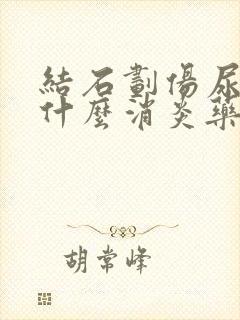 結石劃傷尿
什麼消炎藥
胡常峰